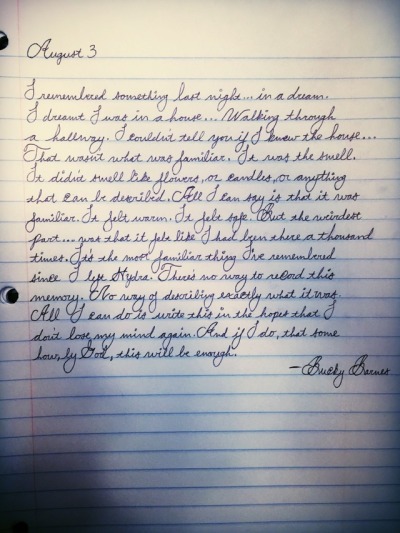 August 3
I remembered something last night... in a dream.
I dreamt I was in a house... Walking through
a hallway. I couldn't tell you if I knew the house...
That wasn't what was familiar. It was the smell.
It didn't smell like flowers, or candles, or anything
that can be described. All I can say is that it was
familiar. It felt warm. It felt safe. But the weirdest
part... was that it felt like I had been there a thousand
times. It's the most familiar thing I've remembered
since I left Hydra. There's no way to record this
memory. No way of describing exactly what it was.
All I can do is write this in the hopes that I
don't lose my mind again. And if I do, that some
how, by God, this will be enough.
—Bucky Barnes